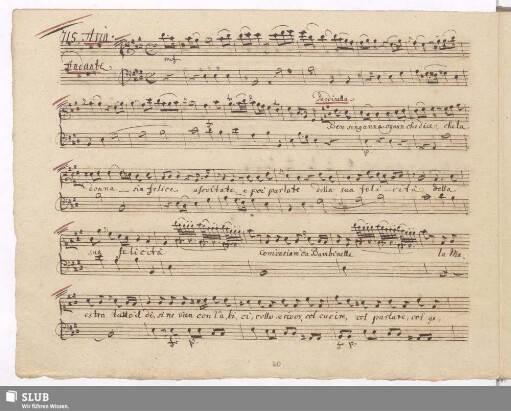 Aria
Andante
mf
Ben s'inganna ognun che dice, che la
donna sia felice ascoltate e poi parlate della sua felicità della
sua felicità cominciam da Bambinella la Ma
estra tutto il dì, se ne vien con l'a, bi, ci, collo scriver, col cucir, col parlare, col
p.
f. p.
f. p.
40
SLUB
Wir führen Wissen.